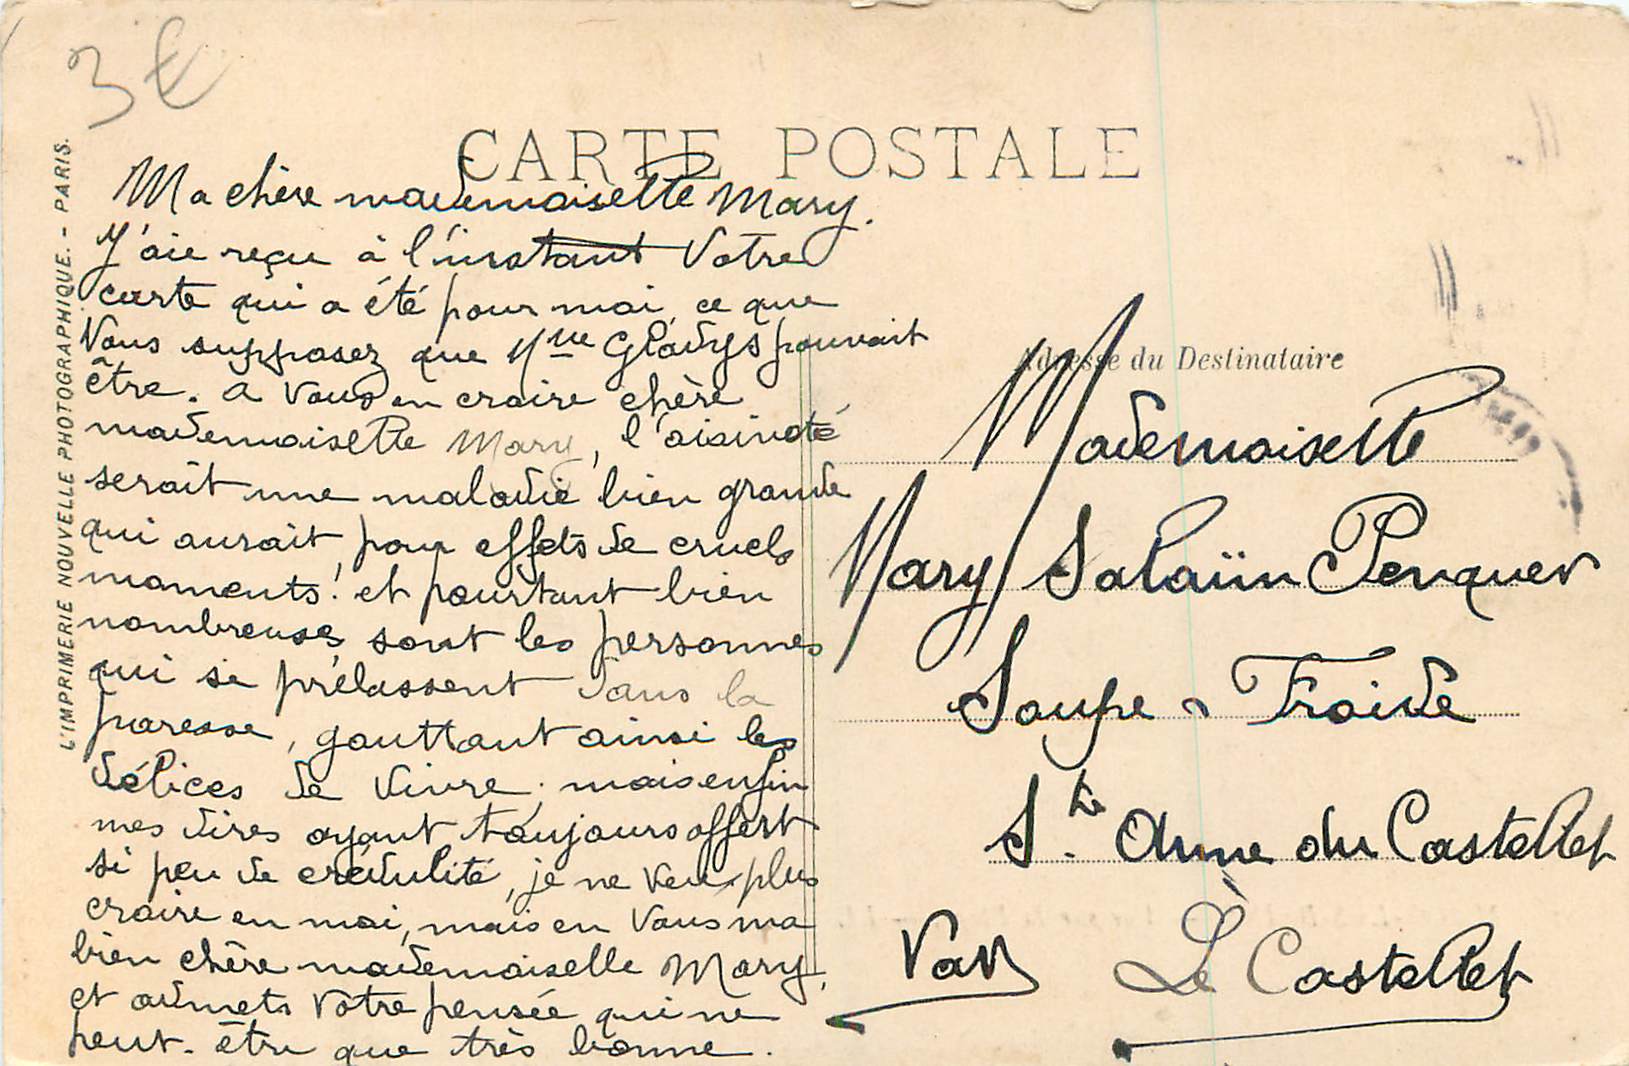 3€
CARTE POSTALE
L'IMPRIMERIE NOUVELLE PHOTOGRAPHIQUE. - PARIS.
Ma chère mademoiselle Mary.
J'aie reçu à l'instant Votre
carte qui a été pour moi, ce que
Vous supposez que Mlle Gladys pouvait
être. a Vous en croire chère
mademoiselle Mary, l'oisiveté
serait une maladie bien grande
qui aurait pour effets de cruels
moments! et pourtant bien
nombreuses sont les personnes
qui se prélassent dans la
paresse, gouttant ainsi les
délices de vivre; mais enfin
mes dires ayant toujours offert
si peu de crédulité, je ne veux plus
croire en moi, mais en Vous ma
bien chère mademoiselle Mary,
et admets Votre pensée qui ne
peut-être que très bonne.
Adresse du Destinataire
Mademoiselle
Mary Salaün Penquer
Soupe - Froide
Ste Anne du Castellet
Le Castellet
Var